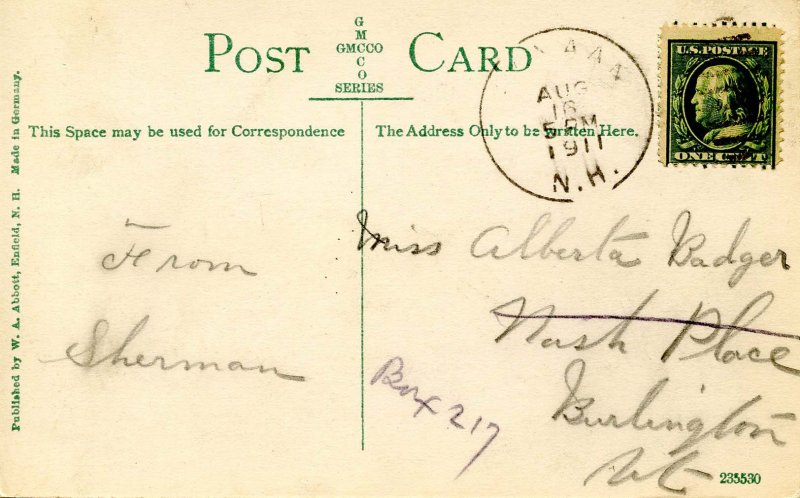 POST CARD
G
M
GMCCO
C
O
SERIES
This Space may be used for Correspondence
The Address Only to be written Here.
AUG
16
5 PM
1911
N.H.
U.S. POSTAGE
ONE CENT
Published by W. A. Abbott, Enfield, N. H. Made in Germany.
From
Sherman
Miss Alberta Badger
Nash Place
Box 217
Burlington
Vt
235530